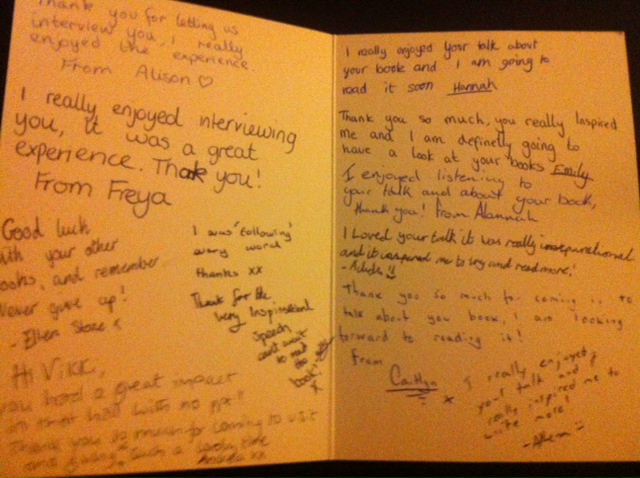 Thank you for letting us
interview you, I really
enjoyed the experience
From Alison ♡
I really enjoyed interviewing
you, it was a great
experience. Thank you!
From Freya
Good luck
with your other
books, and remember
Never give up!
- Ellen
I was 'following'
every word
thanks xx
Thank for the
very Inspirational
speech
can't wait
to read
the
book
x
Hi Vikk,
you had a great impact
on that hall with no ppt!
Thank you so much for coming to visit
and giving such a lovely
xx
I really enjoyed your talk about
your book and I am going to
read it soon Hannah
Thank you so much, you really Inspired
me and I am definelly going to
have a look at your books Emily
I enjoyed listening to
your talk and about your book,
thank you! from Alannah
I Loved your talk it was really
and it inspired me to try and read more!
Thank you so much for coming in to
talk about you book, I am looking
forward to reading it!
From
Caitlyn
x
I really enjoyed
your talk and it
really inspired me to
write more!